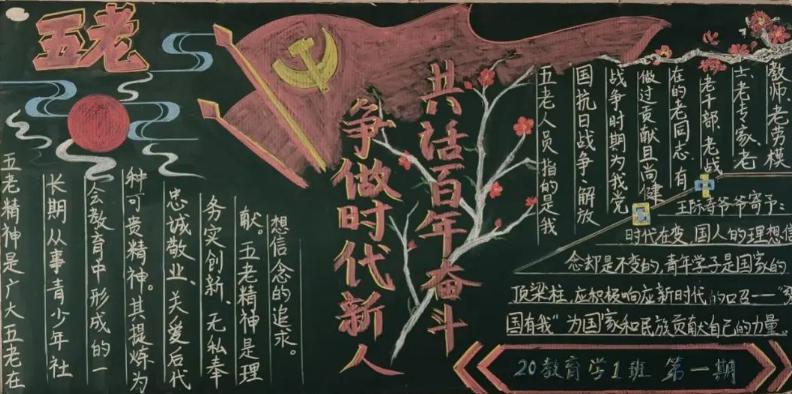 五老
五老精神是广大五老在
长期从事青少年社
会教育中形成的一
种可贵精神。其提炼为
忠诚敬业、关爱后代
务实创新、无私奉
献。五老精神是理
想信念的追求。
共话百年奋斗
争做时代新人
五老人员,指的是我
国抗日战争、解放
战争时期为我党
做过贡献且尚健
在的老同志,有
老干部、老战
士、老专家、老
教师、老劳模
爷爷寄予:
时代在变,国人的理想信
念却是不变的,青年学子是国家的
顶梁柱,应积极响应新时代的号召——“强
国有我”为国家和民族贡献自己的力量。
20教育学1班 第一期